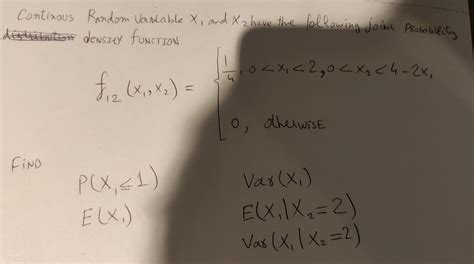 Continous Random Variable X₁ and X₂ have the following joint Probability
distribution DENSITY FUNCTION
f₁₂ (x₁, x₂) = { 1/4, 0 < x₁ < 2, 0 < x₂ < 4 - 2x₁
0, otherwise
FIND
P(X₁ ≤ 1) Var(X₁)
E(X₁) E(X₁ | X₂ = 2)
Var(X₁ | X₂ = 2)